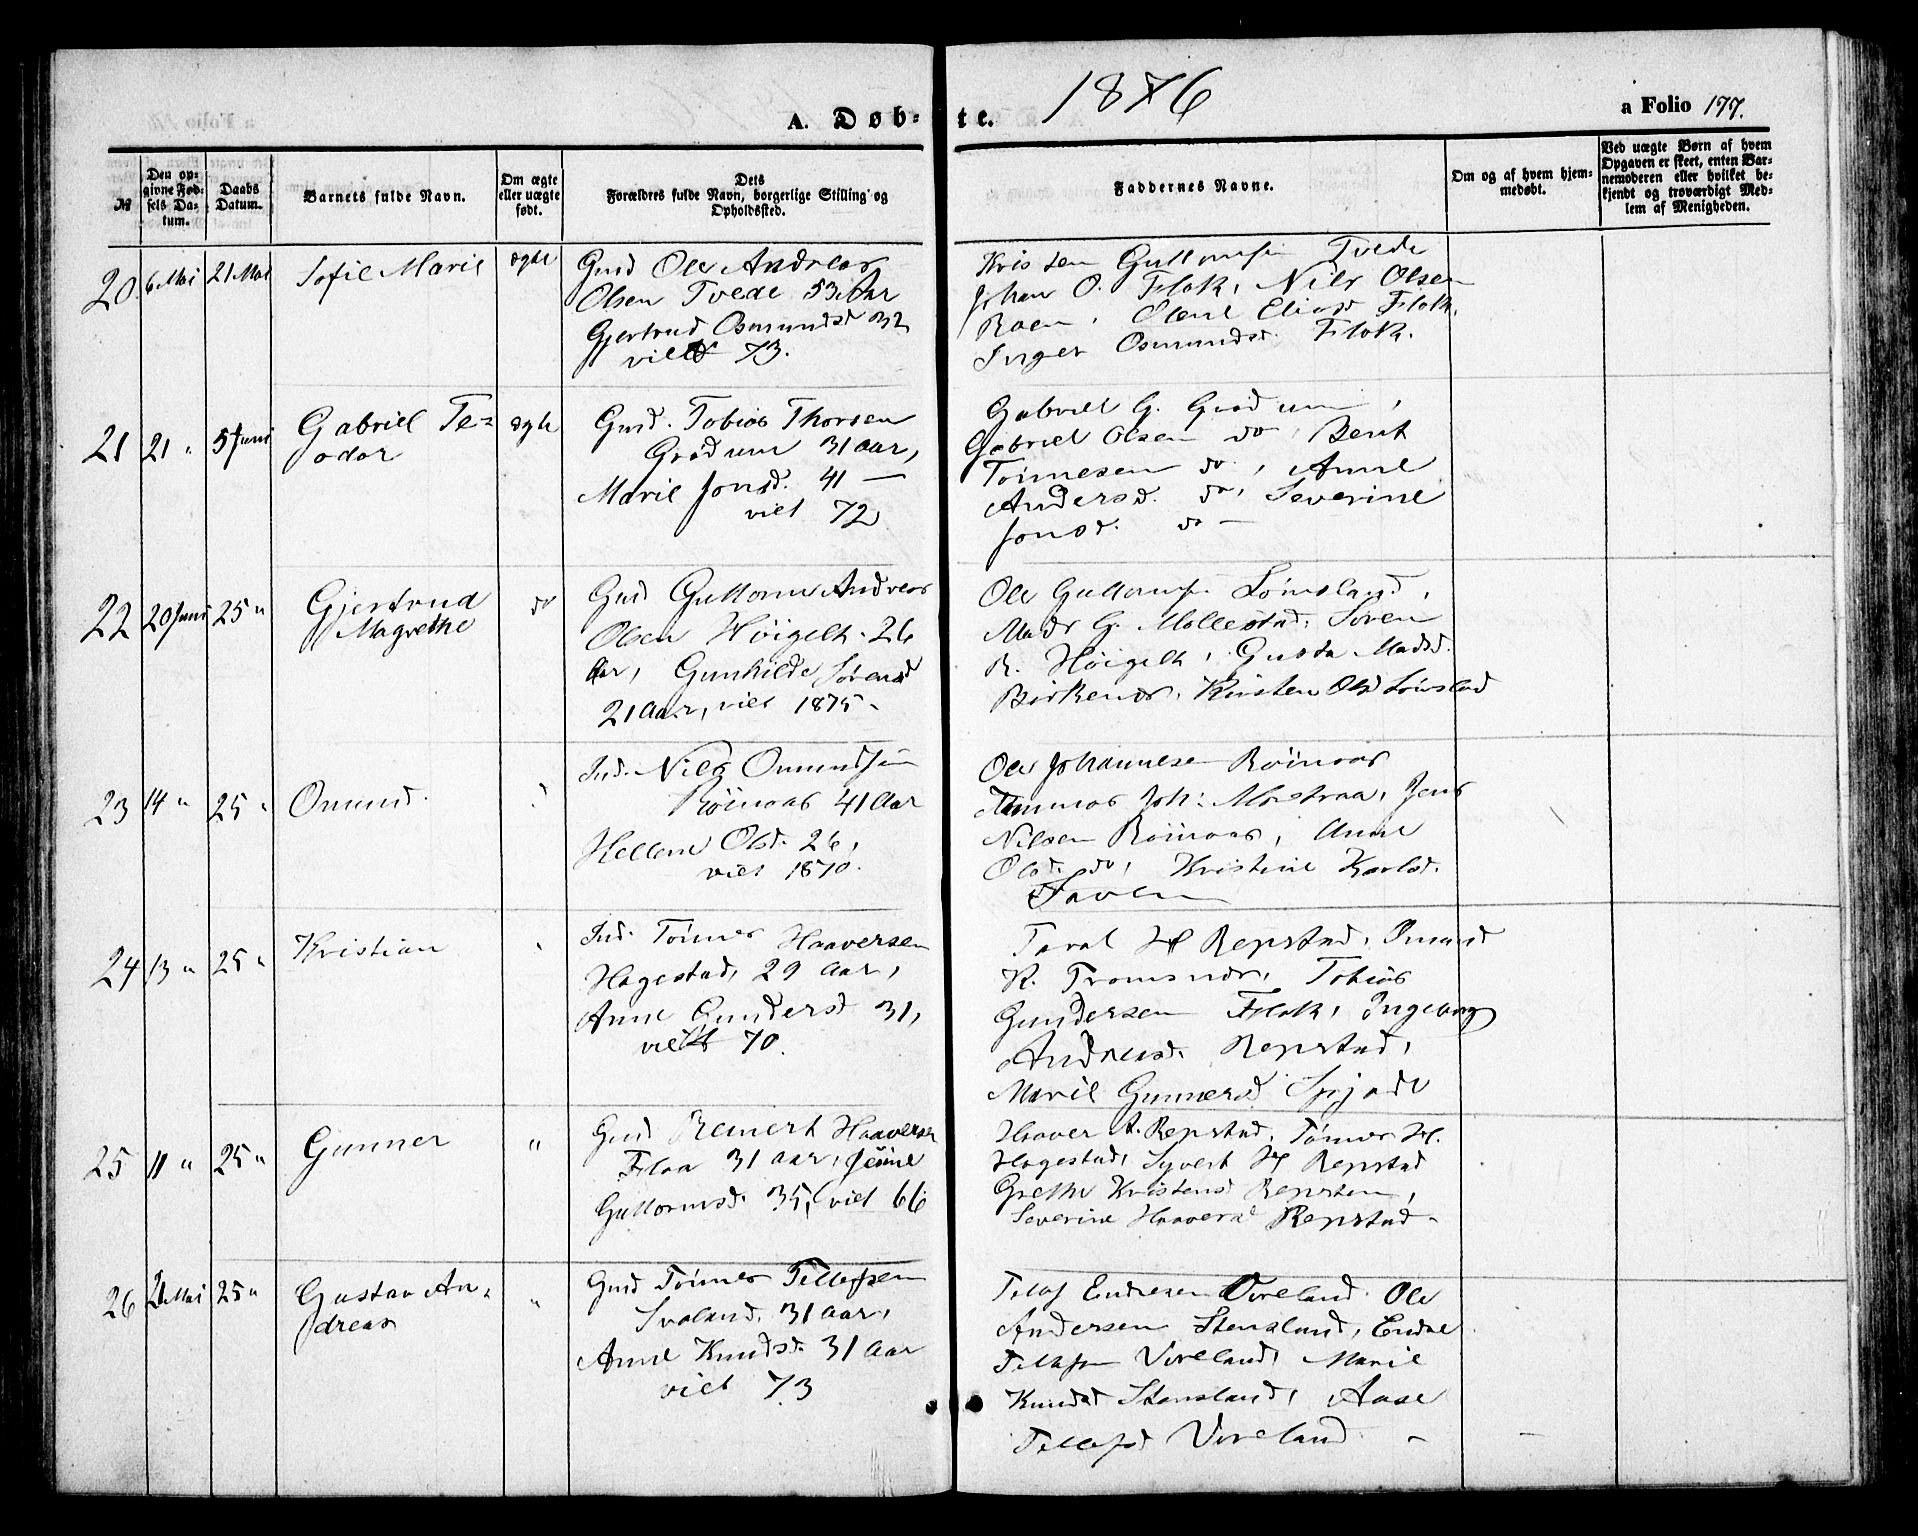 A. Døb-
te. 1876
a Folio 177.
№
Den op-
givne Fød-
sels Da-
tum.
Daabs
Datum.
Barnets fulde Navn.
Om ægte
eller uægte
født.
Dets
Forældres fulde Navn, borgerlige Stilling og
Opholdssted.
Faddernes Navne.
Om og af hvem hjem-
medøbt.
Ved uægte Børn af hvem
Opgaven er skeet, enten Bar-
nemoderen eller hvilket be-
kjendt og troværdigt Med-
lem af Menigheden.
20 6 Mai 21 Mai Sofie Marie ægte
Gmd Ole Andreas
Olsen Tvede 53 Aar
Gjertrud Osmundsd 32
viet 73.
Kristen Guttormsen Tvede
Johan O. Flok, Nils Olsen
Roen, Olene Eliasd Flok,
Inger Osmundsd. Flok.
21 21 " 5 Juni Gabriel Te=
odor
ægte
Gmd. Tobias Thorsen
Grødum 31 aar,
Marie Jonsd. 41 —
viet 72
Gabriel G. Grødum,
Gabriel Olsen do, Berit
Tönnesen do, Anne
Andersd. do, Severine
Jonsd. do —
22 20 Juni 25 " Gjertrud
Magrethe
do
Gmd Guttorm Andreas
Olsen Höigelt. 26
Aar, Gunhilde Sørensd
21 Aar, viet 1875.
Ole Guttormsen Lömsland,
Mads G. Mollestad, Sören
R. Höigelt, Gusta Madsd.
Birkenes, Kirsten Olsd Lömsland
23 14 " 25 " Omund.
Ind. Nils Omundsen
Röinaas 41 Aar
Hellene Olsd. 26,
viet 1870.
Ole Johannesen Röinaas
Tommas Joh: Moetraa, Jens
Nilsen Röinaas, Anne
Olsd. do, Kristine Karlsd.
24 13 " 25 " Kristian "
Ind. Tönnes Haaversen
Hagestad, 29 aar,
Anne Gundersd 31,
viet 70.
Taral H Repstad, Omund
K. Tromsnes, Tobias
Gundersen Flok, Ingeborg
Andreasd. Repstad,
Marie Gunnersd
25 11 " 25 " Gunner "
Gmd Reinert Haaversen
Flaa 31 aar,
Guttormsd. 35, viet 66
Haaver A. Repstad, Tönnes H.
Hagestad, Syvert H Repstad
Grethe Kristensd Repstad,
Severine Haaversd Repstad.
26 21 Mai 25 " Gustav An=
dreas
"
Gmd Tönnes Tellefsen
Svaland, 31 aar,
Anne Knudsd. 31 Aar
viet 73
Tellef Endresen Vereland. Ole
Andersen Stensland, Endre
Tellefsen Vereland, Marie
Knudsd Stensland, Aase
Tellefsd Vereland —